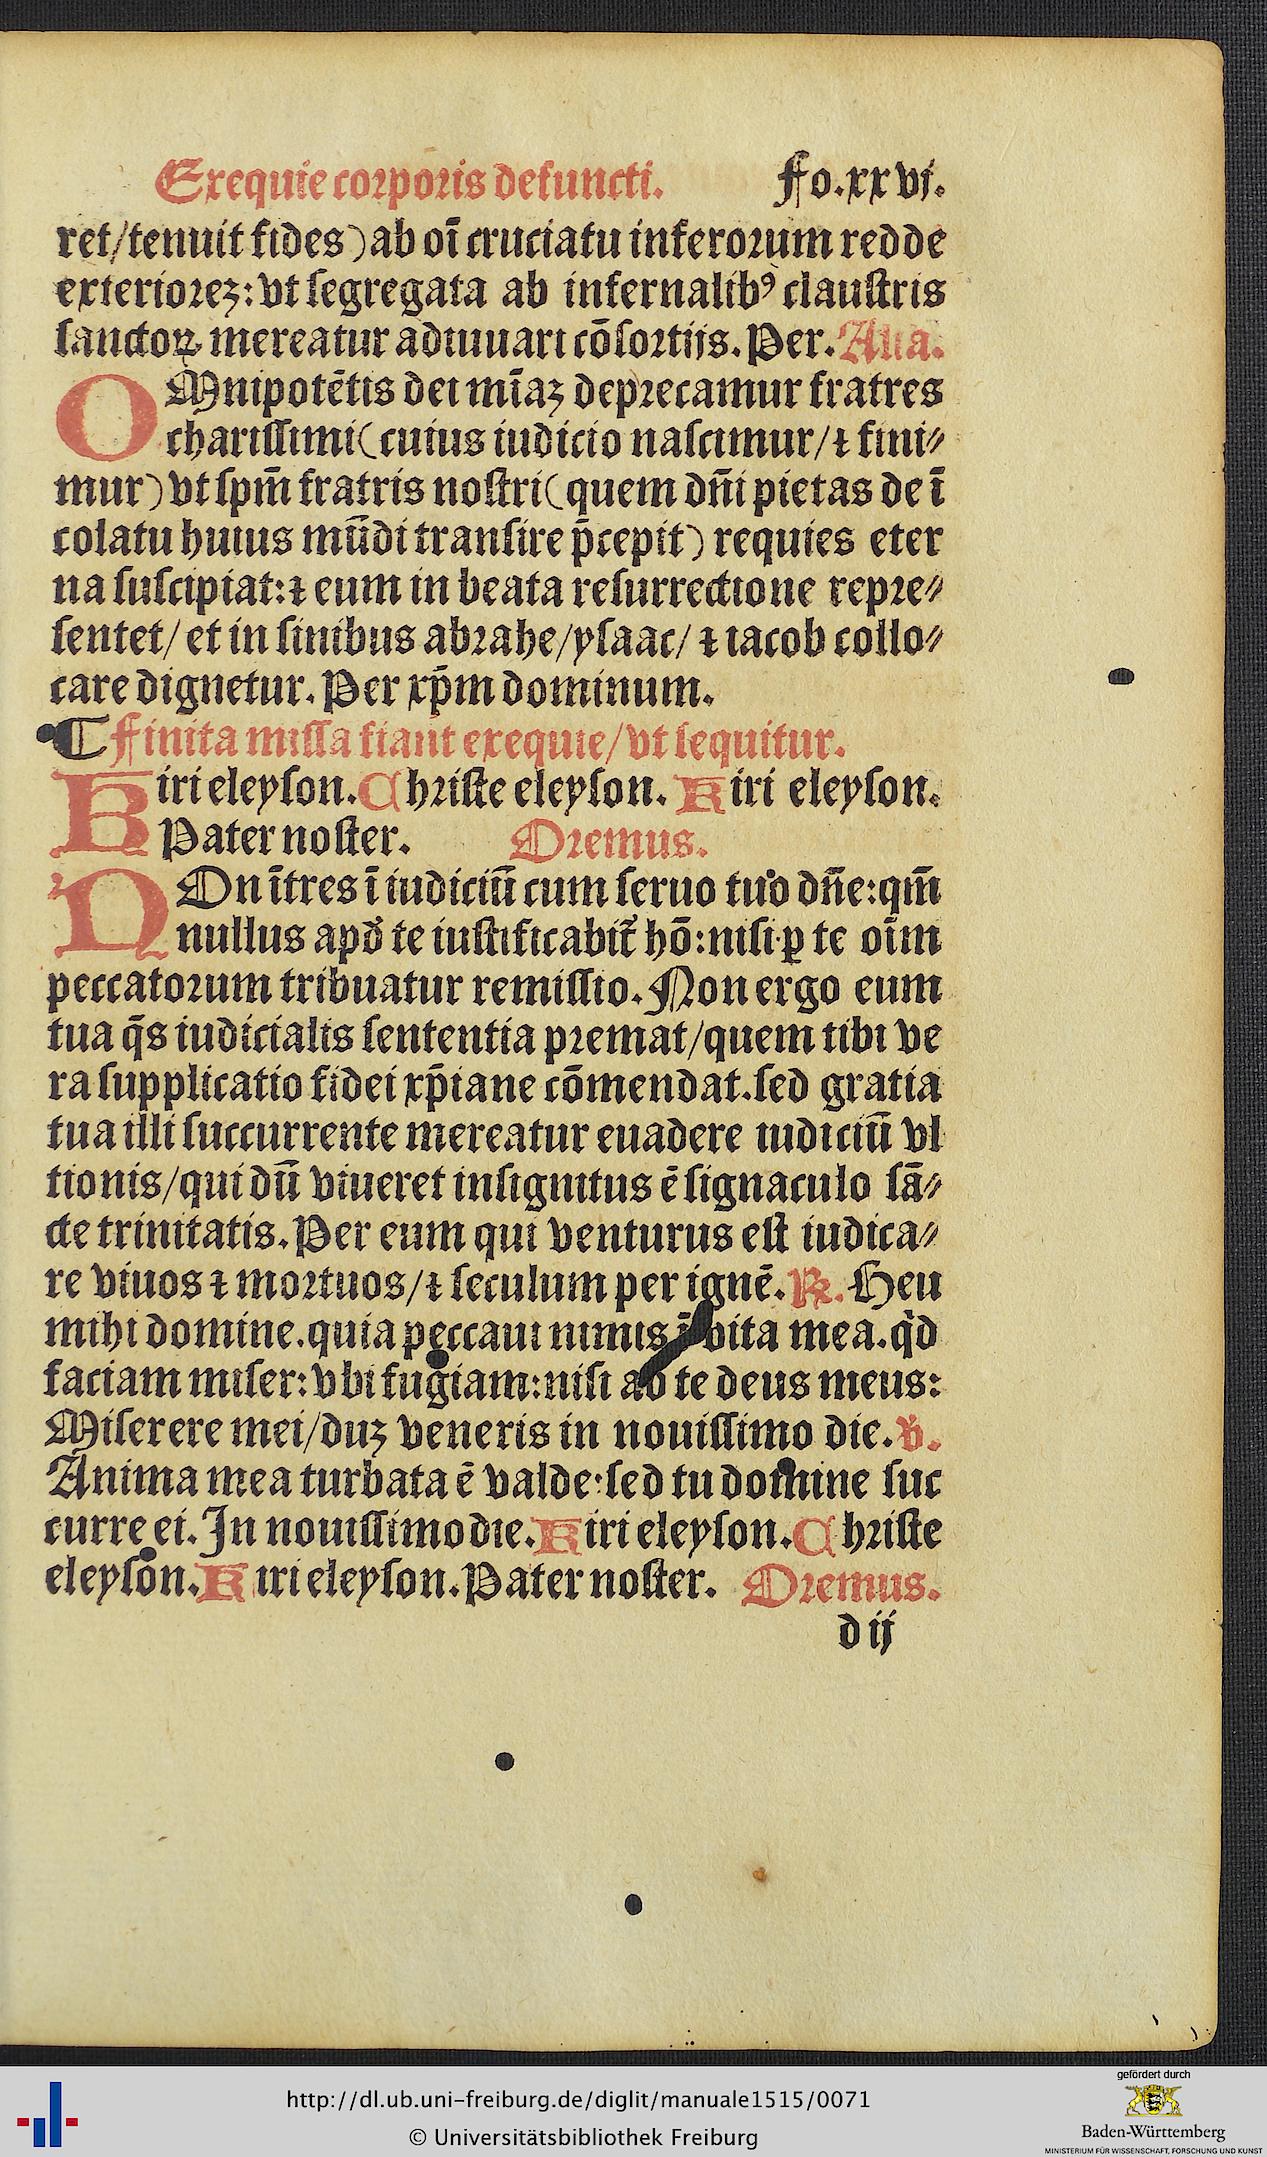 Exequie corporis defuncti. Fo.xxvj.
ret/tenuit fides) ab oī cruciatu inferorum redde
exteriorez: vt segregata ab infernalibꝰ claustris
sanctoꝝ mereatur adiuuari cōsortijs. Per. Alia.
OMnipotētis dei mīaz deprecamur fratres
charissimi (cuius iudicio nascimur/⁊ fini⸗
mur) vt spm̄ fratris nostri (quem dn̄i pietas de ī
colatu huius mūdi transire p̄cepit) requies eter
na suscipiat: ⁊ eum in beata resurrectione repre⸗
sentet/ et in sinibus abrahe/ysaac/ ⁊ iacob collo⸗
care dignetur. Per xp̄m dominum.
¶ Finita missa fiant exequie/vt sequitur.
Kiri eleyson. Christe eleyson. Kiri eleyson.
Pater noster. Oremus.
NOn ītres ī iudiciū cum seruo tuo dn̄e: qm̄
nullus apđ te iustificabit̄ hō: nisi ꝑ te oīm
peccatorum tribuatur remissio. Non ergo eum
tua q̄s iudicialis sententia premat/quem tibi ve
ra supplicatio fidei xp̄iane cōmendat. sed gratia
tua illi succurrente mereatur euadere iudiciū vl
tionis/qui dū viueret insignitus ē signaculo sā⸗
cte trinitatis. Per eum qui venturus est iudica⸗
re viuos ⁊ mortuos/⁊ seculum per ignē. ℟. Heu
mihi domine. quia peccaui nimis ī vita mea. qd̓
faciam miser: vbi fugiam: nisi ad te deus meus:
Miserere mei/duz veneris in nouissimo die. ℣.
Anima mea turbata ē valde: sed tu domine suc
curre ei. In nouissimo die. Kiri eleyson. Christe
eleyson. Kiri eleyson. Pater noster. Oremus.
d ij
http://dl.ub.uni-freiburg.de/diglit/manuale1515/0071
© Universitätsbibliothek Freiburg
gefördert durch
Baden-Württemberg
MINISTERIUM FÜR WISSENSCHAFT, FORSCHUNG UND KUNST